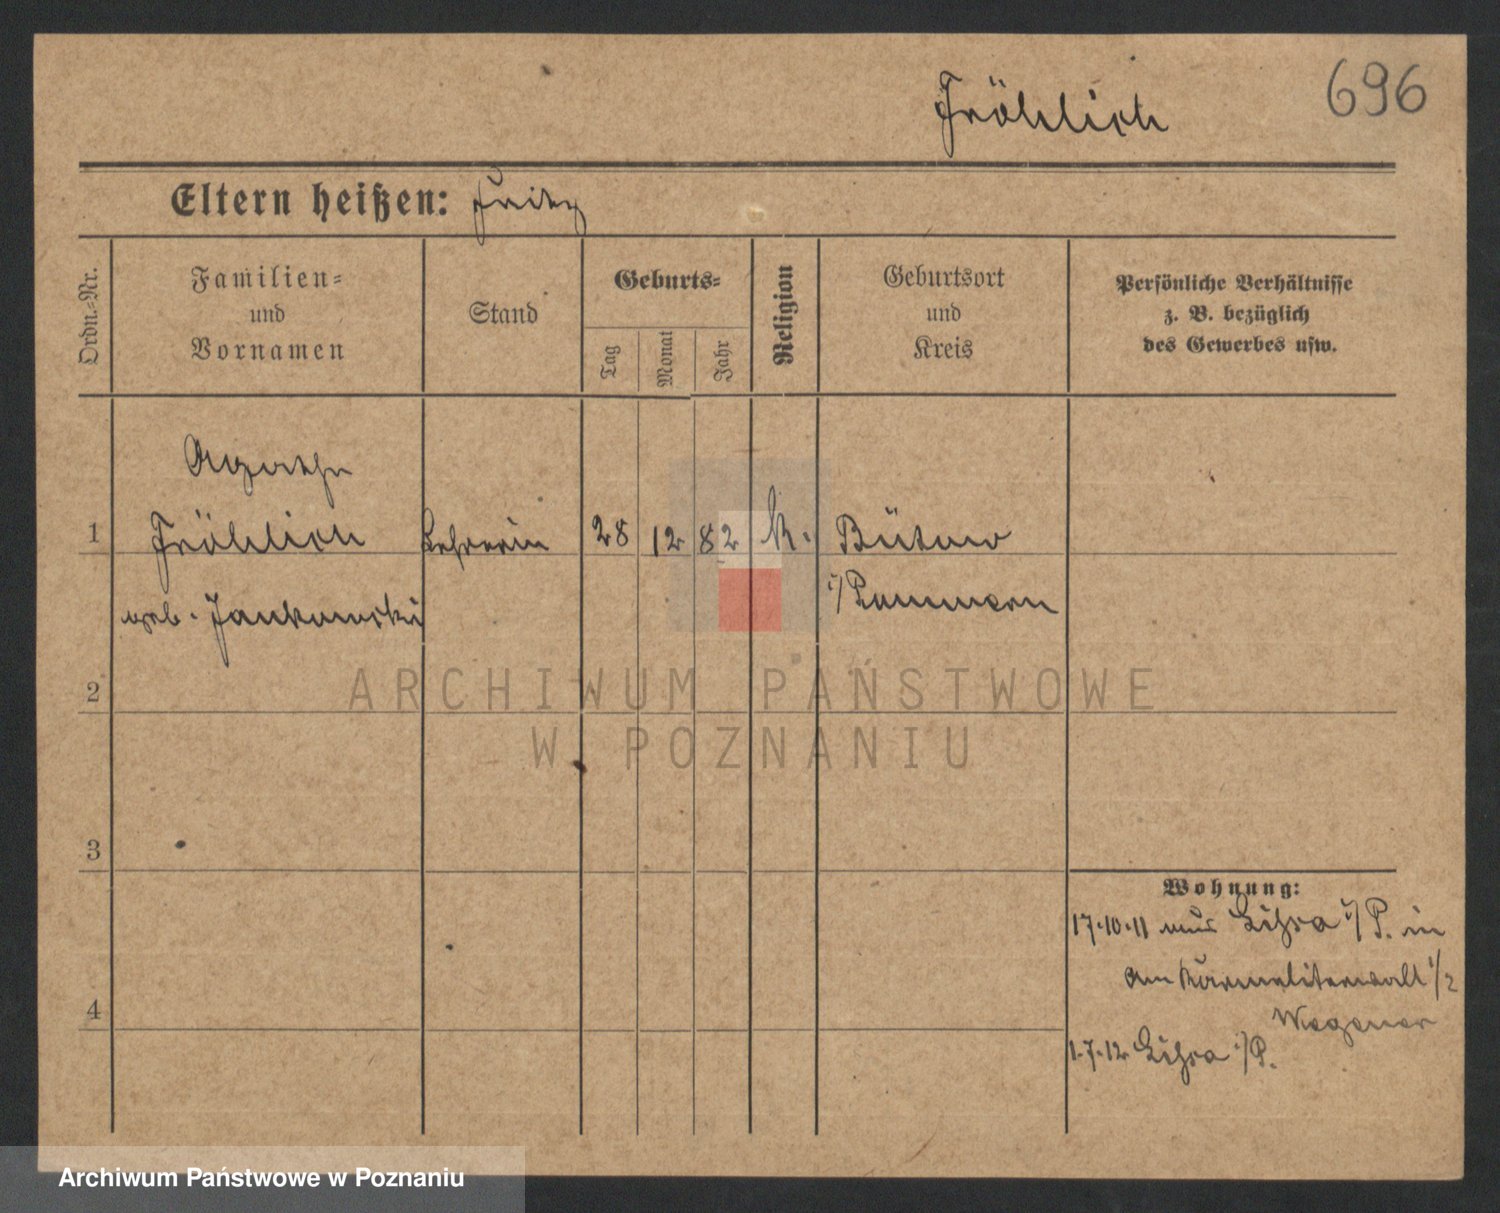 Fröhlich
696
Eltern heißen:
Ordn.-Nr.
Familien-
und
Vornamen
Stand
Geburts-
Tag
Monat
Jahr
Religion
Geburtsort
und
Kreis
Persönliche Verhältnisse
z. B. bezüglich
des Gewerbes usw.
Agathe
1 Fröhlich Lehrerin 28 12 82 k. Bütow
geb. Jankowski i/Pommern
2
3
4
Wohnung:
17.10.11 aus i/P. in
Am Karmeliterwall 1/2
Wegener
1.7.12 i/P.
ARCHIWUM PAŃSTWOWE
W POZNANIU
Archiwum Państwowe w Poznaniu